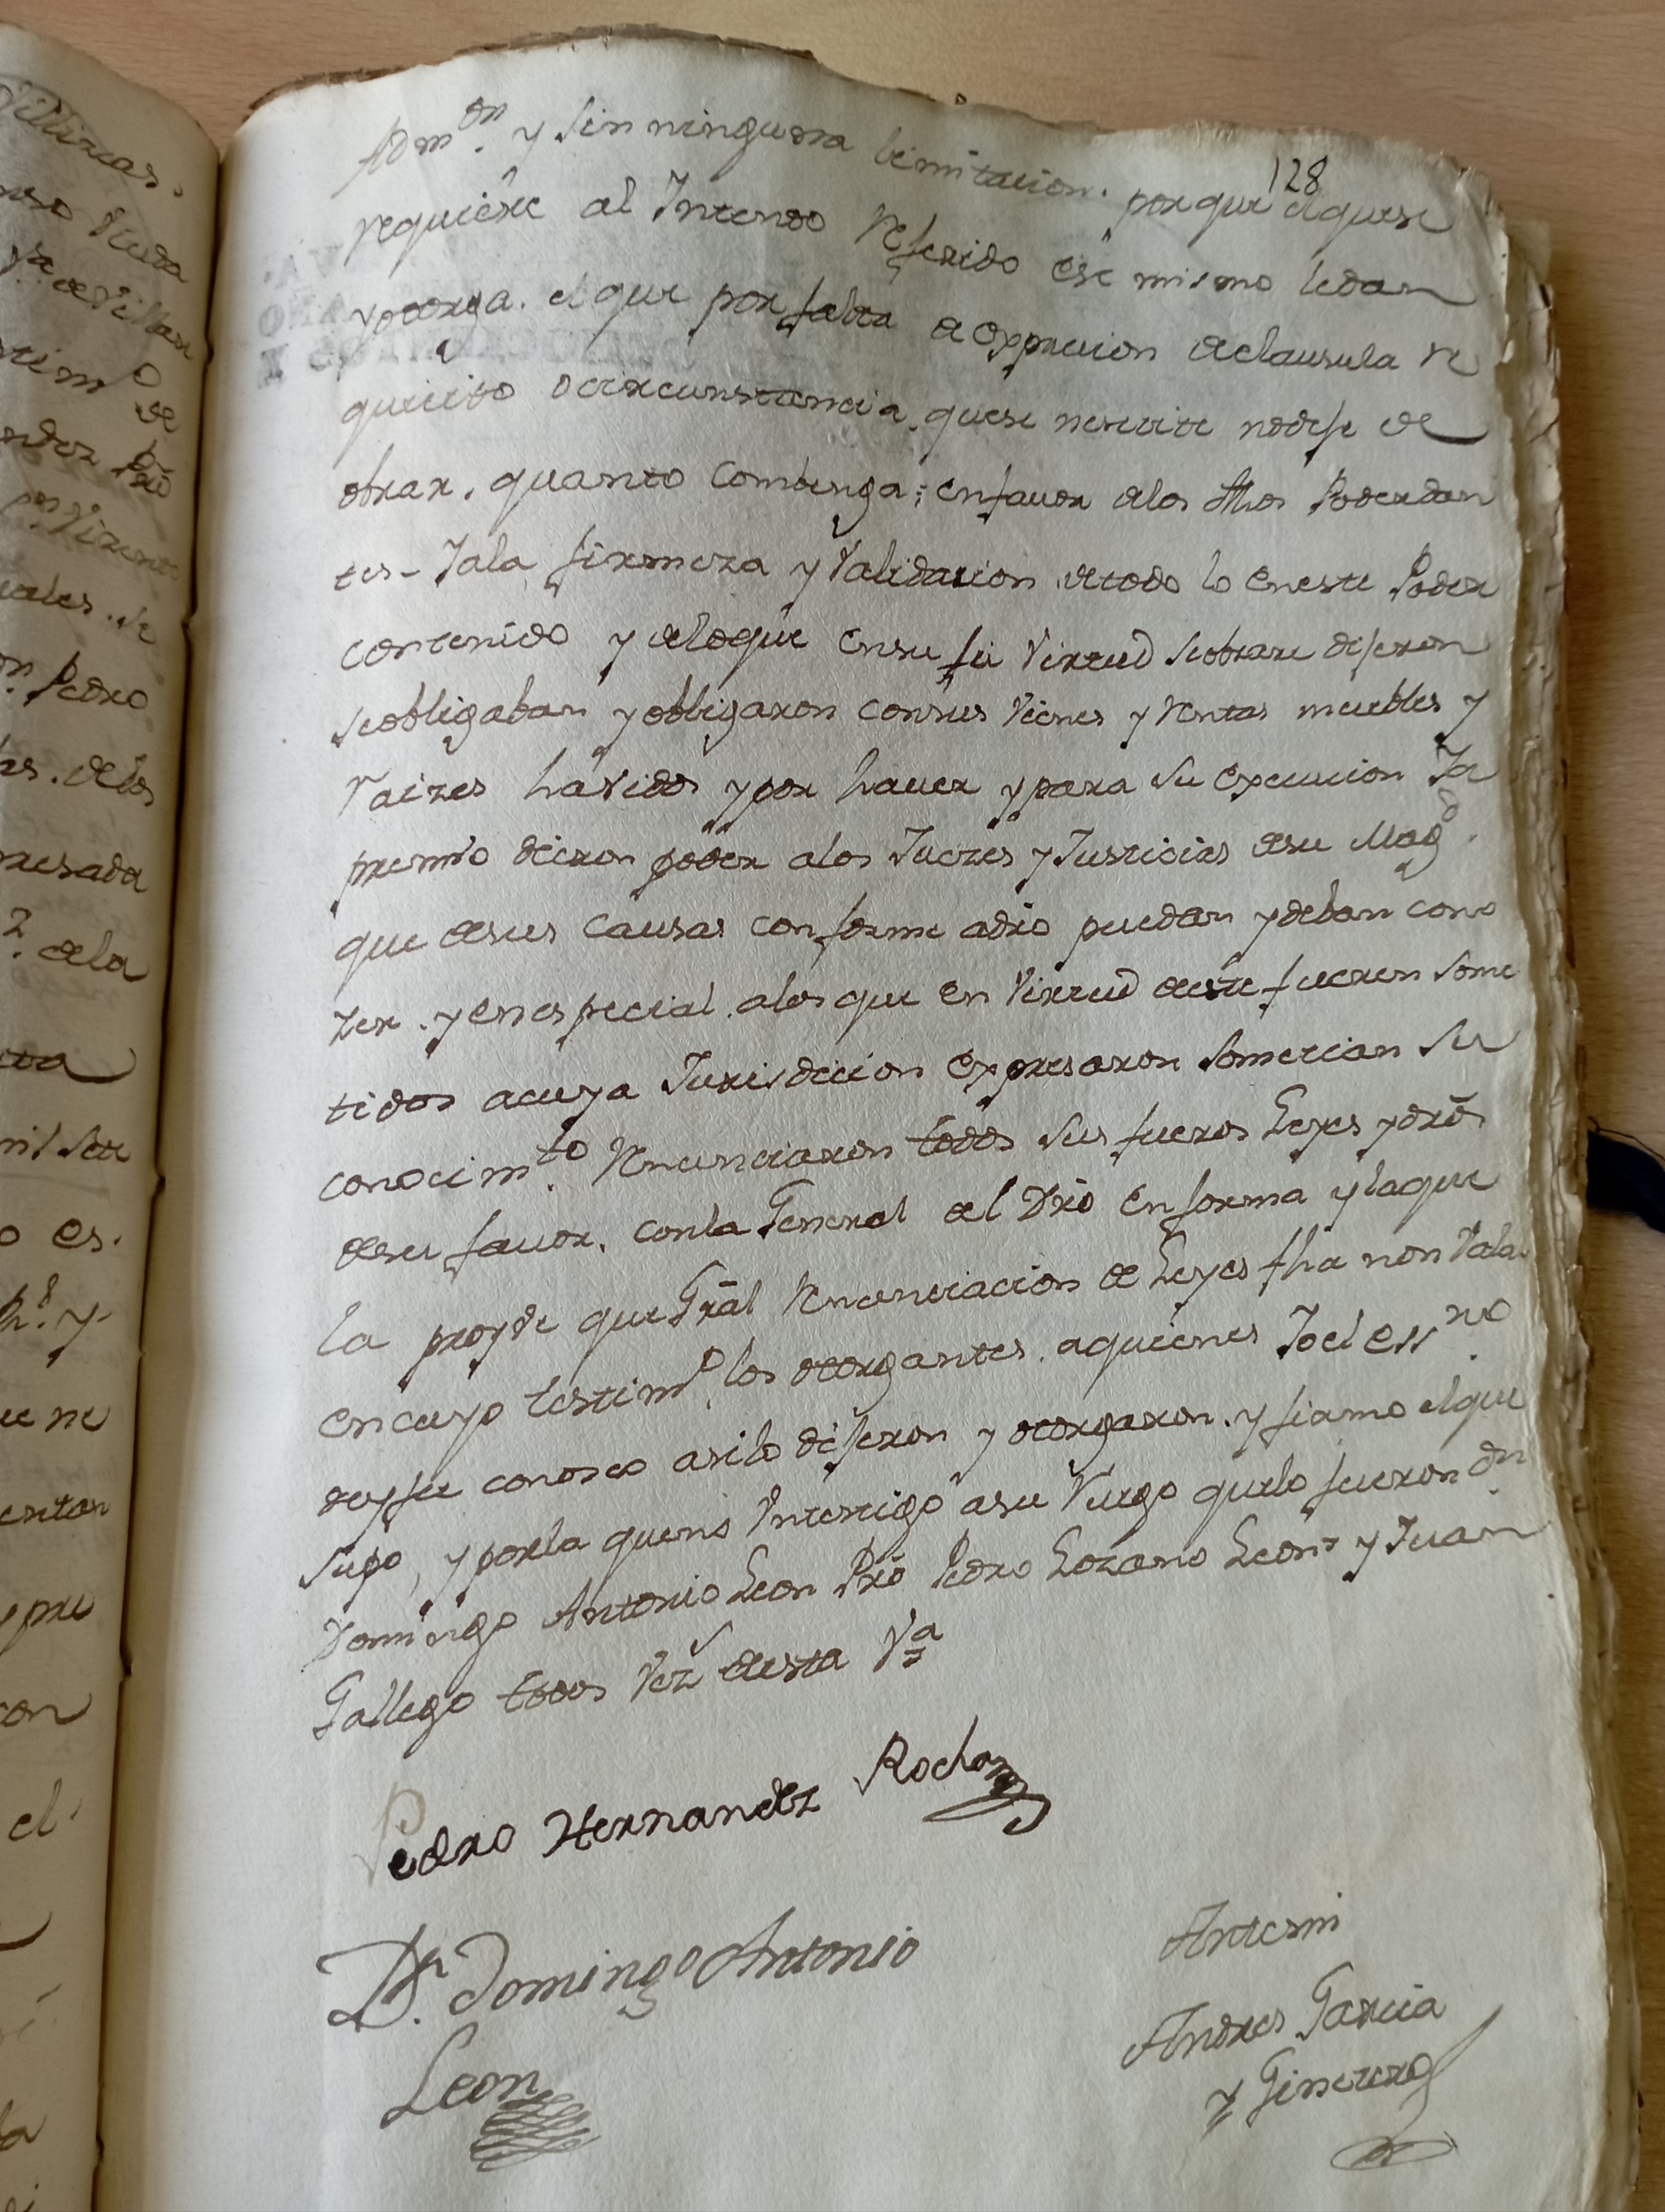 128
Adm.on y sin ninguna limitacion. porque el que se
requiere al Intento referido ese mismo le dan
y otorga. el que por falta de expresion de clausula re
quicito o circunstancia que se nesecite no deje de
obrar, quanto combenga; en favor de los dhos Poderdan
tes – Y a la firmeza y validacion de todo lo en este Poder
contenido y de lo que en su fu virtud se obrare dijeron
se obligaban y obligaron con sus vienes y rentas muebles y
raizes havidos y por haver y para su execucion Ya
premio dieron poder a los Juezes y Justicias de su Magd.
que de sus causas conforme a dro puedan y deban cono
zer. y en especial. a los que en virtud de este fueren some
tidos a cuya Jurisdicion expresaron sometian su
conocimto. renunciaron todos sus fueros Leyes y dros
de su favor. con la General del Dro en forma y la que
la proyve que Gral renunciacion de Leyes fha non vala.
en cuyo testimo. los otorgantes. a quienes Yo el essno.
doy fee conosco asi lo dijeron y otorgaron. y firmo el que
supo, y por la que no Untestigo a su ruego que lo fueron dn.
Domingo Antonio Leon Pro Pedro Lozano Leon y Juan
Gallego todos vez de esta Va
Pedro Hernandez Rochan
Dn. Domingo Antonio
Leon
Antemi
Andres Garcia
y Ginerero